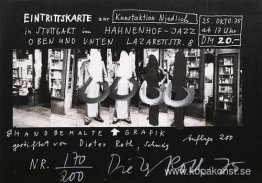 EINTRITTSKARTE zur Kunstaktion Niedlich
in STUTTGART im HAHNENHOF-JAZZ
OBEN UND UNTEN LAZARETTSTR. 8
25. OKTO. 75
ab 17 UHR
DM 20.-
HANDBEMALTE GRAFIK
gestiftet von Dieter Roth, Schweiz
Auflage 200
NR. 170/200
Dieter Roth 75
www.kopakonst.se